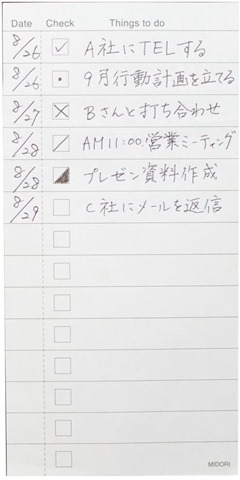 Date Check Things to do
8/26 A社にTELする
8/26 9月行動計画を立てる
8/27 Bさんと打ち合わせ
8/28 AM11:00.営業ミーティング
8/28 プレゼン資料作成
8/29 C社にメールを返信
MIDORI